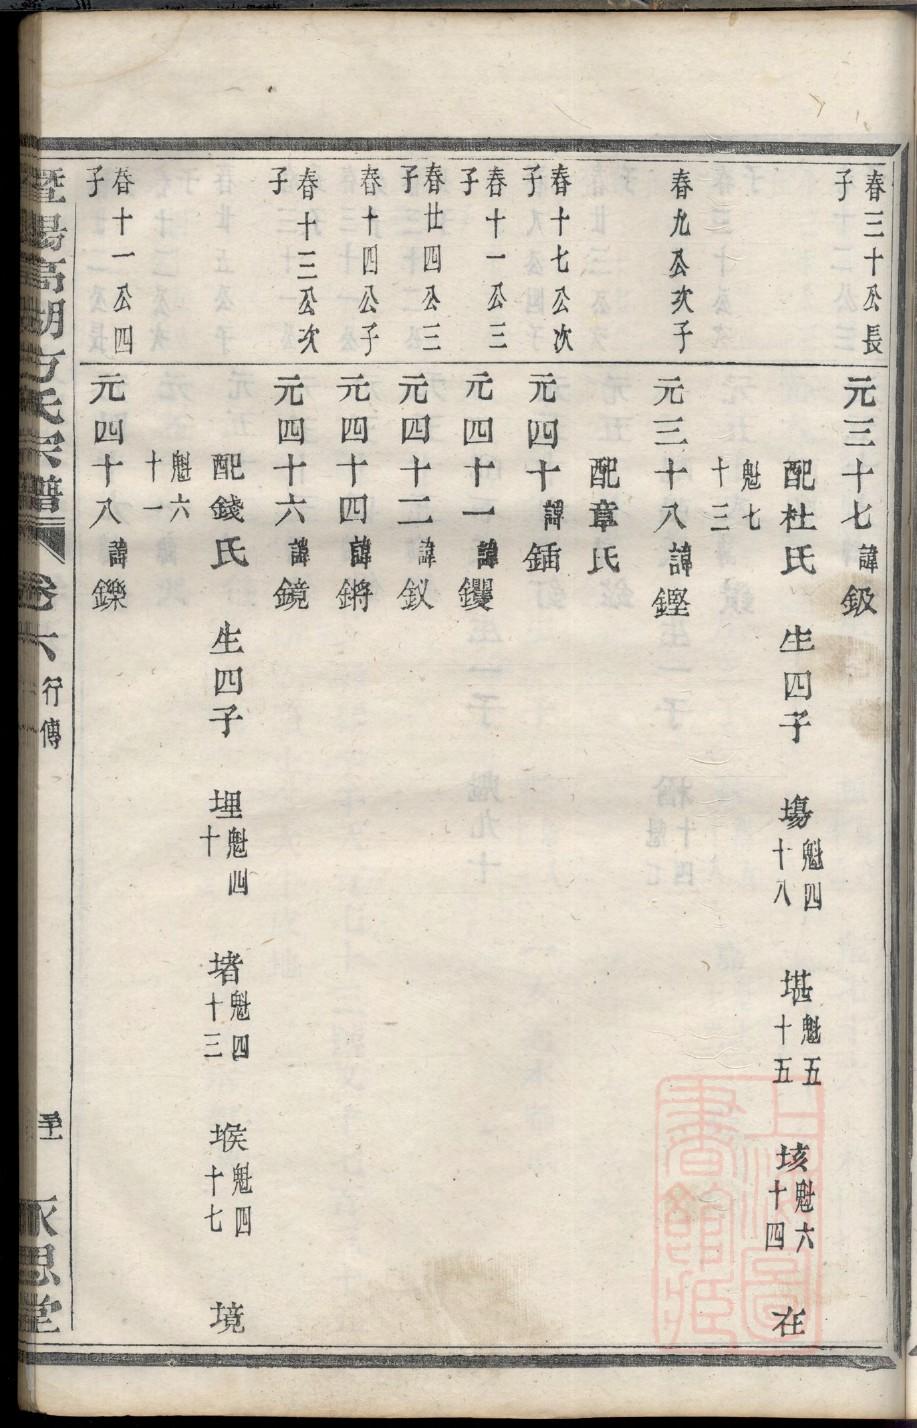 春三十公長子
元三十七諱鈒
配杜氏 生四子 塲魁四十八 堪魁五十五 垓魁六十四 在
魁七十三
春九公次子
元三十八諱鏗
配章氏
春十七公次子
元四十諱鍤
春十一公三子
元四十一諱钁
春廿四公三子
元四十二諱釵
春十四公子
元四十四諱鏘
春十三公次子
元四十六諱鏡
配錢氏 生四子 埋魁四十 堵魁四十三 堠魁四十七 境
魁六十一
春十一公四子
元四十八諱鑠
暨陽高湖方氏宗譜 卷六 行傳 永思堂